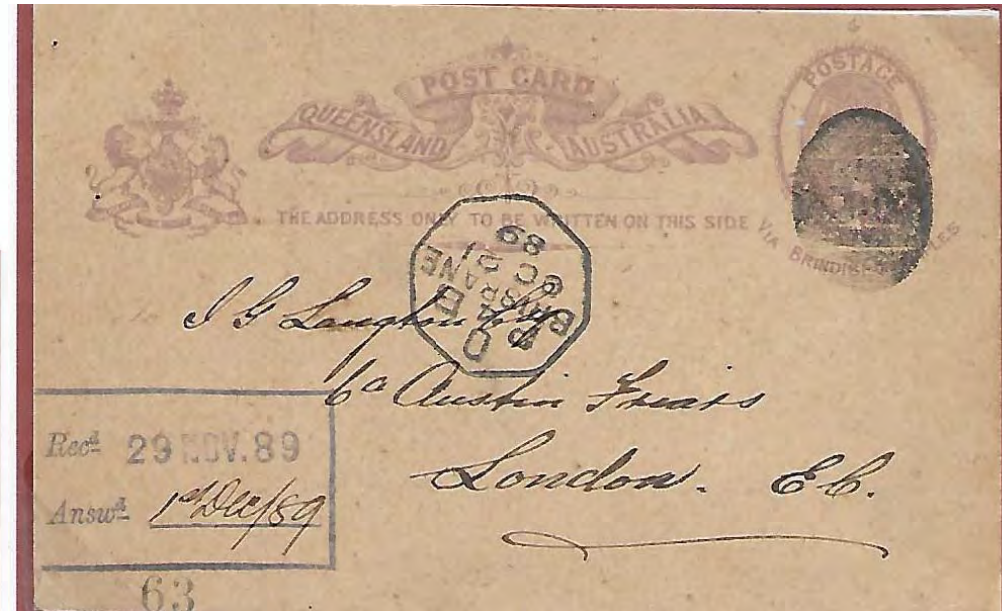 POST CARD
QUEENSLAND AUSTRALIA
POSTAGE
THE ADDRESS ONLY TO BE WRITTEN ON THIS SIDE
VIA BRINDISI
BRISBANE
89
J G Langton Esq
6a Austin Friars
London. E.C.
Recd 29 NOV. 89
Answd 1st Dec/89
63